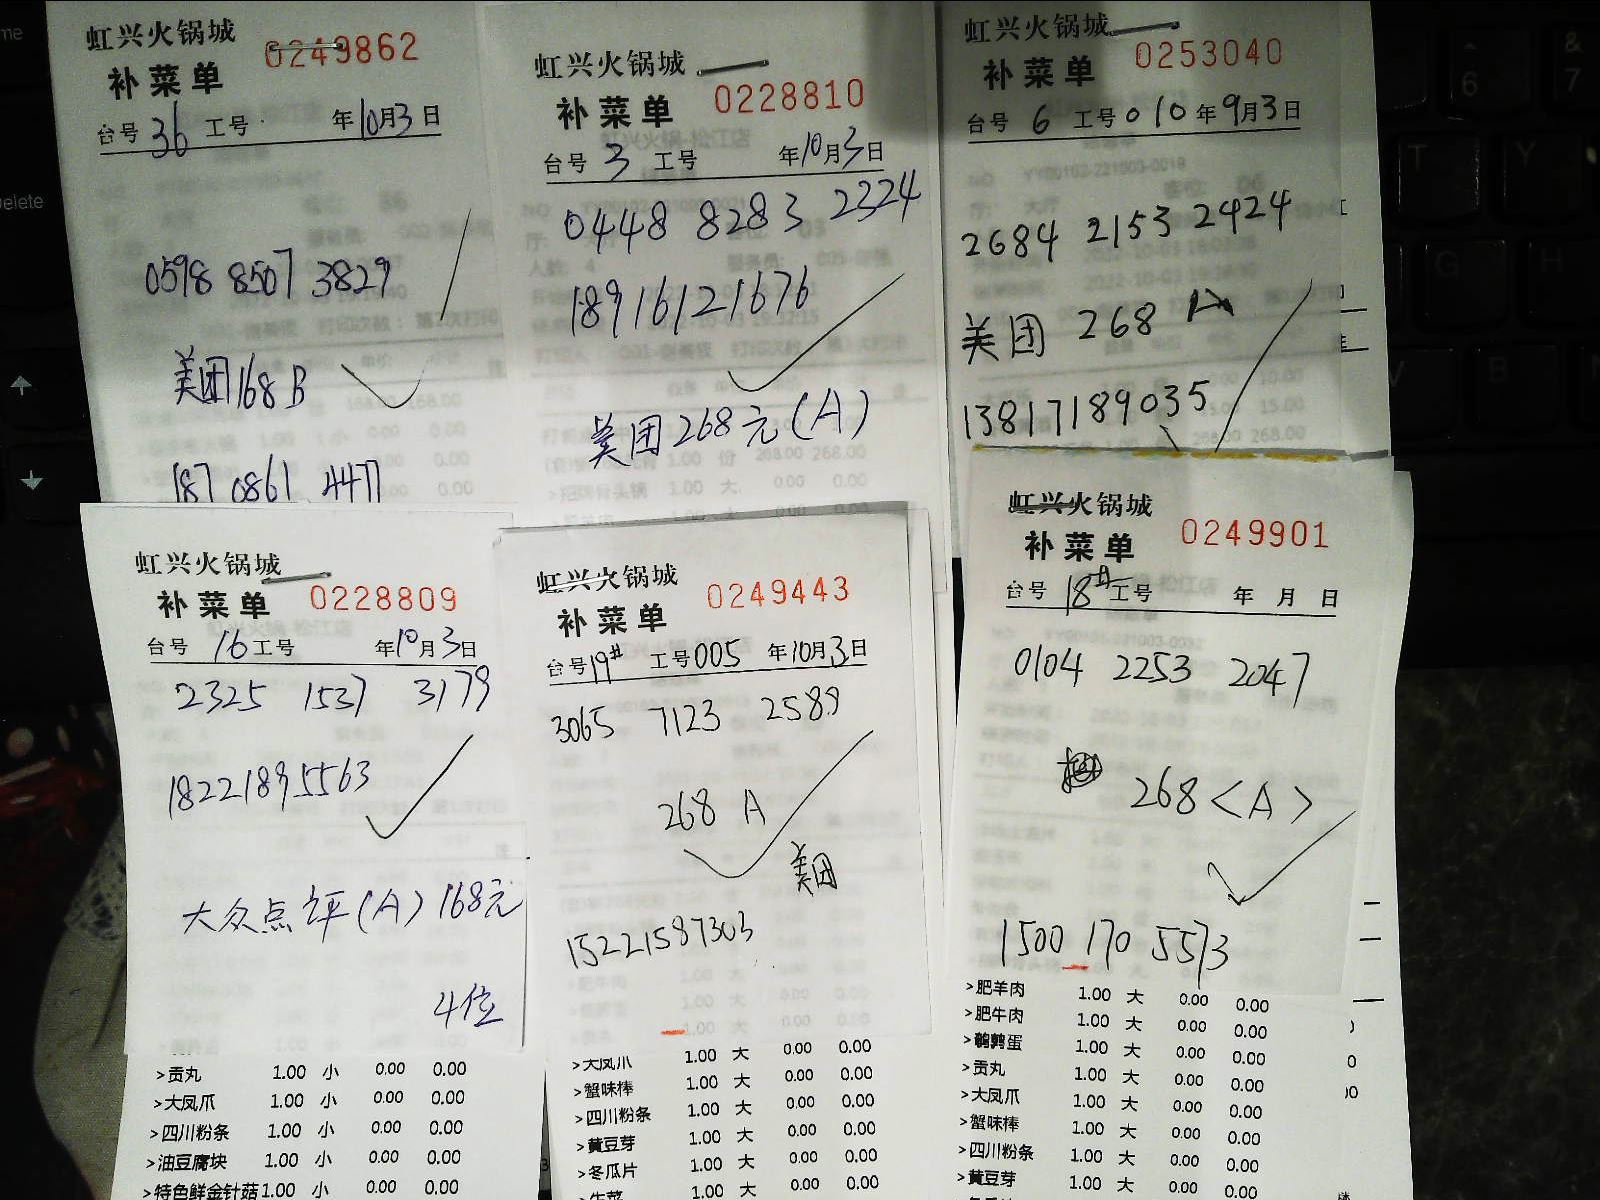 虹兴火锅城
0249862
补菜单
台号 36 工号 年10月3日
0598 8507 3829
美团168 B
187 0861 4477
虹兴火锅城
0228810
补菜单
台号 3 工号 年10月3日
0448 8283 2324
18916121676
美团268元(A)
虹兴火锅城
0253040
补菜单
台号 6 工号 010 年9月3日
2684 2153 2424
美团 268 A
13817189035
虹兴火锅城
0228809
补菜单
台号 16 工号 年10月3日
2325 1537 3179
18221895563
大众点评(A)168元
4位
>贡丸 1.00 小 0.00 0.00
>大凤爪 1.00 小 0.00 0.00
>四川粉条 1.00 小 0.00 0.00
>油豆腐块 1.00 小 0.00 0.00
>特色鲜金针菇 1.00 小 0.00 0.00
虹兴火锅城
0249443
补菜单
台号 19# 工号 005 年10月3日
3065 7123 2589
268 A
美团
15221587303
>大凤爪 1.00 大 0.00 0.00
>蟹味棒 1.00 大 0.00 0.00
>四川粉条 1.00 大 0.00 0.00
>黄豆芽 1.00 大 0.00 0.00
>冬瓜片 1.00 大 0.00 0.00
>生菜 1.00 大 0.00 0.00
虹兴火锅城
0249901
补菜单
台号 18# 工号 年 月 日
0104 2253 2047
268<A>
1500 170 5573
>肥羊肉 1.00 大 0.00 0.00
>肥牛肉 1.00 大 0.00 0.00
>鹌鹑蛋 1.00 大 0.00 0.00
>贡丸 1.00 大 0.00 0.00
>大凤爪 1.00 大 0.00 0.00
>蟹味棒 1.00 大 0.00 0.00
>四川粉条 1.00 大 0.00 0.00
>黄豆芽 1.00 大 0.00 0.00